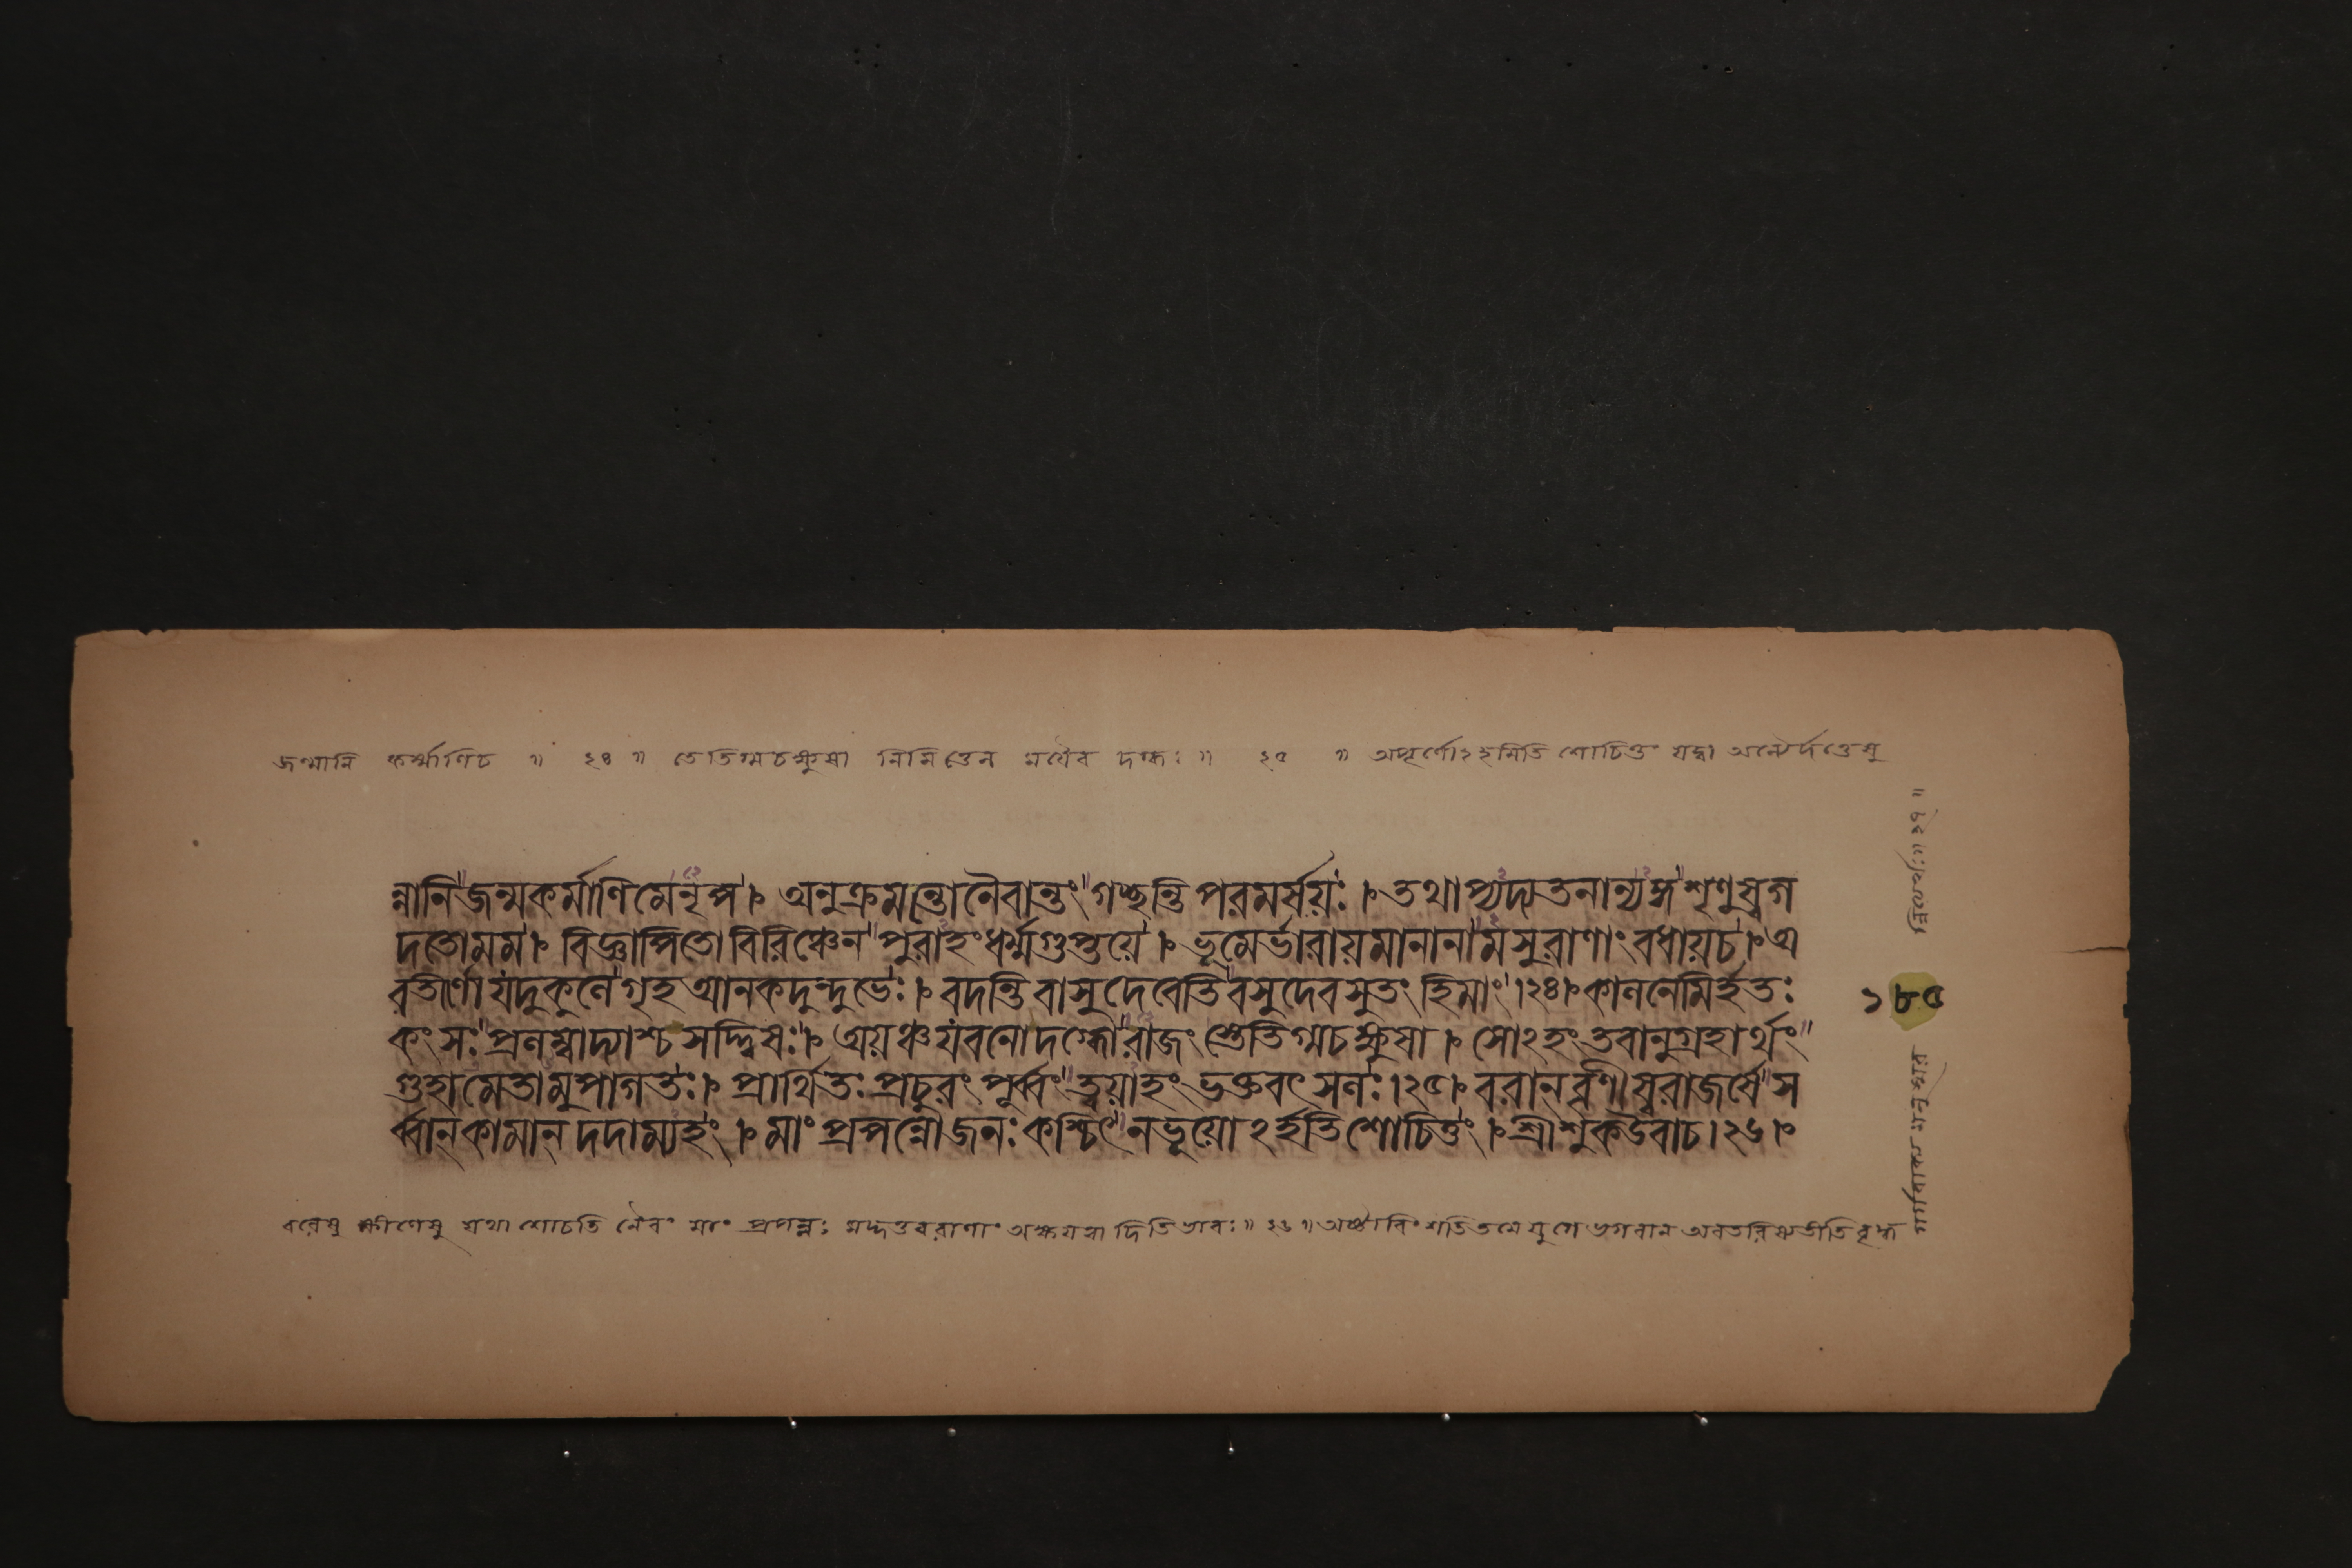 জন্মানি কর্ম্মাণিচ ॥ ২৪ ॥ তেতিগ্মচক্ষুসা নিমিত্তেন ময়ৈব দগ্ধঃ ॥ ২৫ ॥ অপূর্ণোঽহমিতি শোচিতুং যদ্বা অন্যৈর্দত্তেষু
ন্নানি জন্মকর্মাণিমেনৃপ । অনুক্রমন্তোনৈবান্তং গচ্ছন্তি পরমর্সয়ঃ । তথাপ্যদ্যতনান্যঙ্গ শৃণুস্বগ
দতোমম । বিজ্ঞাপিতো বিরিঞ্চেন পুরাহংধর্ম্মগুপ্তয়ে । ভূমের্ভারায়মানানামসুরাণাং বধায়চ । অ
বতীর্ণোযদুকুলেগৃহ আনকদুন্দুভেঃ । বদন্তি বাসুদেবেতি বসুদেবসুতং হিমাং ।২৪। কালনেমির্হতঃ
কংসঃ প্রলম্বাদ্যাশ্চ সদ্দ্বিসঃ । অয়ঞ্চযবনোদগ্ধোরাজংস্তেতিগ্মচক্ষুসা । সোঽহং তবানুগ্রহার্থং
গুহামেতামুপাগতঃ । প্রার্থিতঃ প্রচুরং পূর্ব্বং ত্বয়াহং ভক্তবৎসলঃ ।২৫। বরান্‌ বৃণীস্বরাজর্সে স
র্ব্বান্‌ কামান্‌ দদাম্যহং । মাং প্রপন্নোজনঃ কশ্চিৎ নভূয়োঽর্হতিশোচিতুং । শ্রীশুকউবাচ ।২৬।
বরেষু ক্ষীণেষু যথা শোচতি নৈবং মাং প্রপন্নঃ মদ্দত্তবরাণাং অক্ষয়ত্বাদিতিভাবঃ ॥ ২৬ ॥ অষ্টাবিংশতিতমে যুগে ভগবান অবতরিষ্যতীতি বৃদ্ধ
গর্গবাক্যমনুস্মরন্
১৮৫